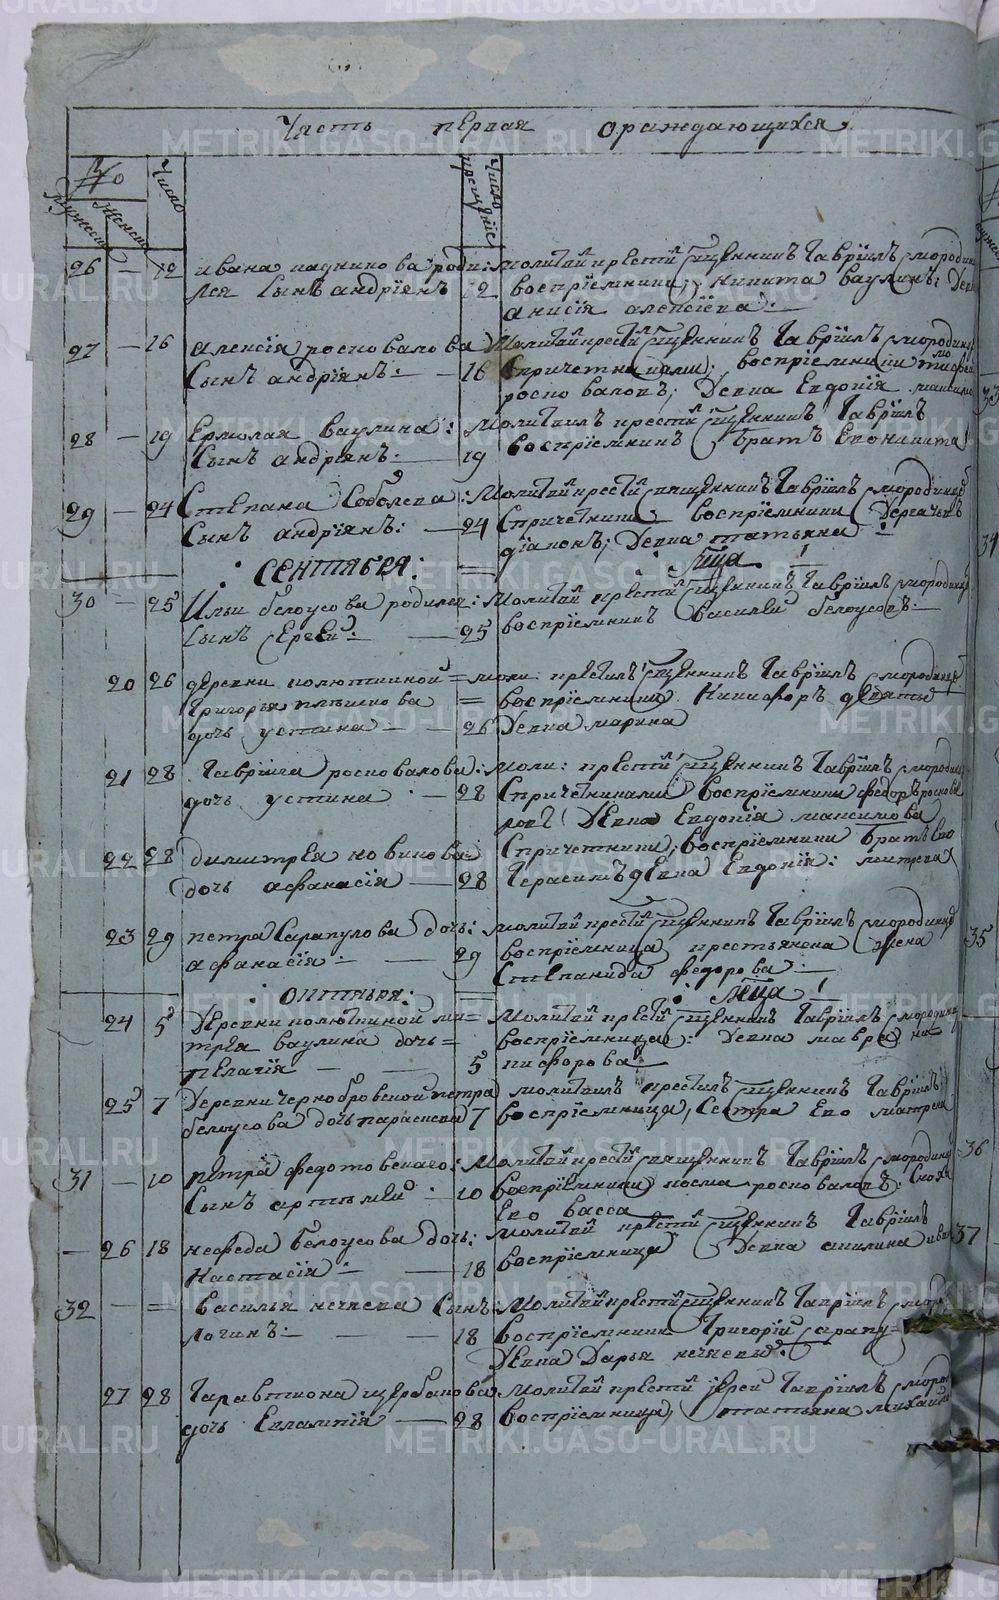 METRIKI.GASO-URAL.RU
Часть первая ораждающихся
№
Мужеска
Женска
Число
Число крещение
26 — 12 ивана падчино ва роди:
лся сынъ андрїянъ 12
молитвой крести священникъ Гаврїилъ смородин
воспрїемники; никита ваулинъ: Дев
анисїя алексїева:
27 — 16 алексїя роспопалова
Сынъ андрїянъ: — 16
молитвой крести священникъ Гаврїилъ смородинц
Спричетниками; воспрїемники тимофеи
роспопаловъ; Девка Евдокїя максимо
28 — 19 Ермолая ваулина:
Сынъ андрїянъ: — 19
Молитвилъ крести священникъ Гаврїилъ
воспрїемникъ братъ Его никита
29 — 24 Степана Соболева:
Сынъ андрїянъ: — 24
Молитвой крести священникъ Гаврїилъ смородинце
Спричетники воспрїемники Дергачевъ
дїаконъ; Девка татьяна
: СЕНТЯБРЯ: = мца !
30 — 25 Ильи белоусова родился:
сынъ Сергей: — 25
молитвой крести священникъ Гаврїилъ смородинце
воспрїемникъ василей белоусовъ:
20 26 деревни полютиной =
Григорья плѣшкова =
дочь устина — 26
моли: крестилъ священникъ Гаврїилъ смородинце
воспрїемники Никифоръ девятые
Девка марина
21 28 Гаврїила роспопалова:
дочь устина: — 28
Моли: крести священникъ Гаврїилъ смородин
Спричетниками воспрїемники федоръ роспопа
Девка Евдокїя максимова
22 28 дилитрея новикова
дочь афанасїя — 28
Спричетники; воспрїемники братъ Ево
Герасимъ девка Евдокїя: митрева
23 29 петра Сарапулова дочь:
афанасїя: — 29
молитвой крести священникъ Гаврїилъ смородинце
воспрїемница крестьянска жена
Степанида федорова:
: октября: = мца !
24 5 Деревни полютиной ми=
трея ваулина дочь =
пелагїя — 5
Молитвой крести священникъ Гаврїилъ смородинц
воспрїемницею: девка мавра ни
кифорова
25 7 Деревни чернобровской петра
белоусова дочь параскева 7
молитвилъ крестилъ священникъ Гаврїилъ
воспрїемница, Сестра Ево матрена
31 — 10 петра федотовскаго:
Сынъ артѣмей: — 10
Молитвой крести священникъ Гаврїилъ смородинц
воспрїемники козма роспопаловъ: Сноха
Ево васса
— 26 18 нефеда белоусова дочь:
Настасїя: — 18
молитвой крести священникъ Гаврїилъ
воспрїемница Девка акилина иван
32 — = василья нечаева Сынъ
логинъ: — 18
Молитвой крести священникъ Гаврїилъ смор
воспрїемники Григорїй сарапу=
Девка Дарья нечаевы:
27 28 Галактиона щербакова
дочь Евлампїя — 28
Молитвой крести їерей Гаврїилъ смород
воспрїемница, татьяна михайло
33
34
35
36
37